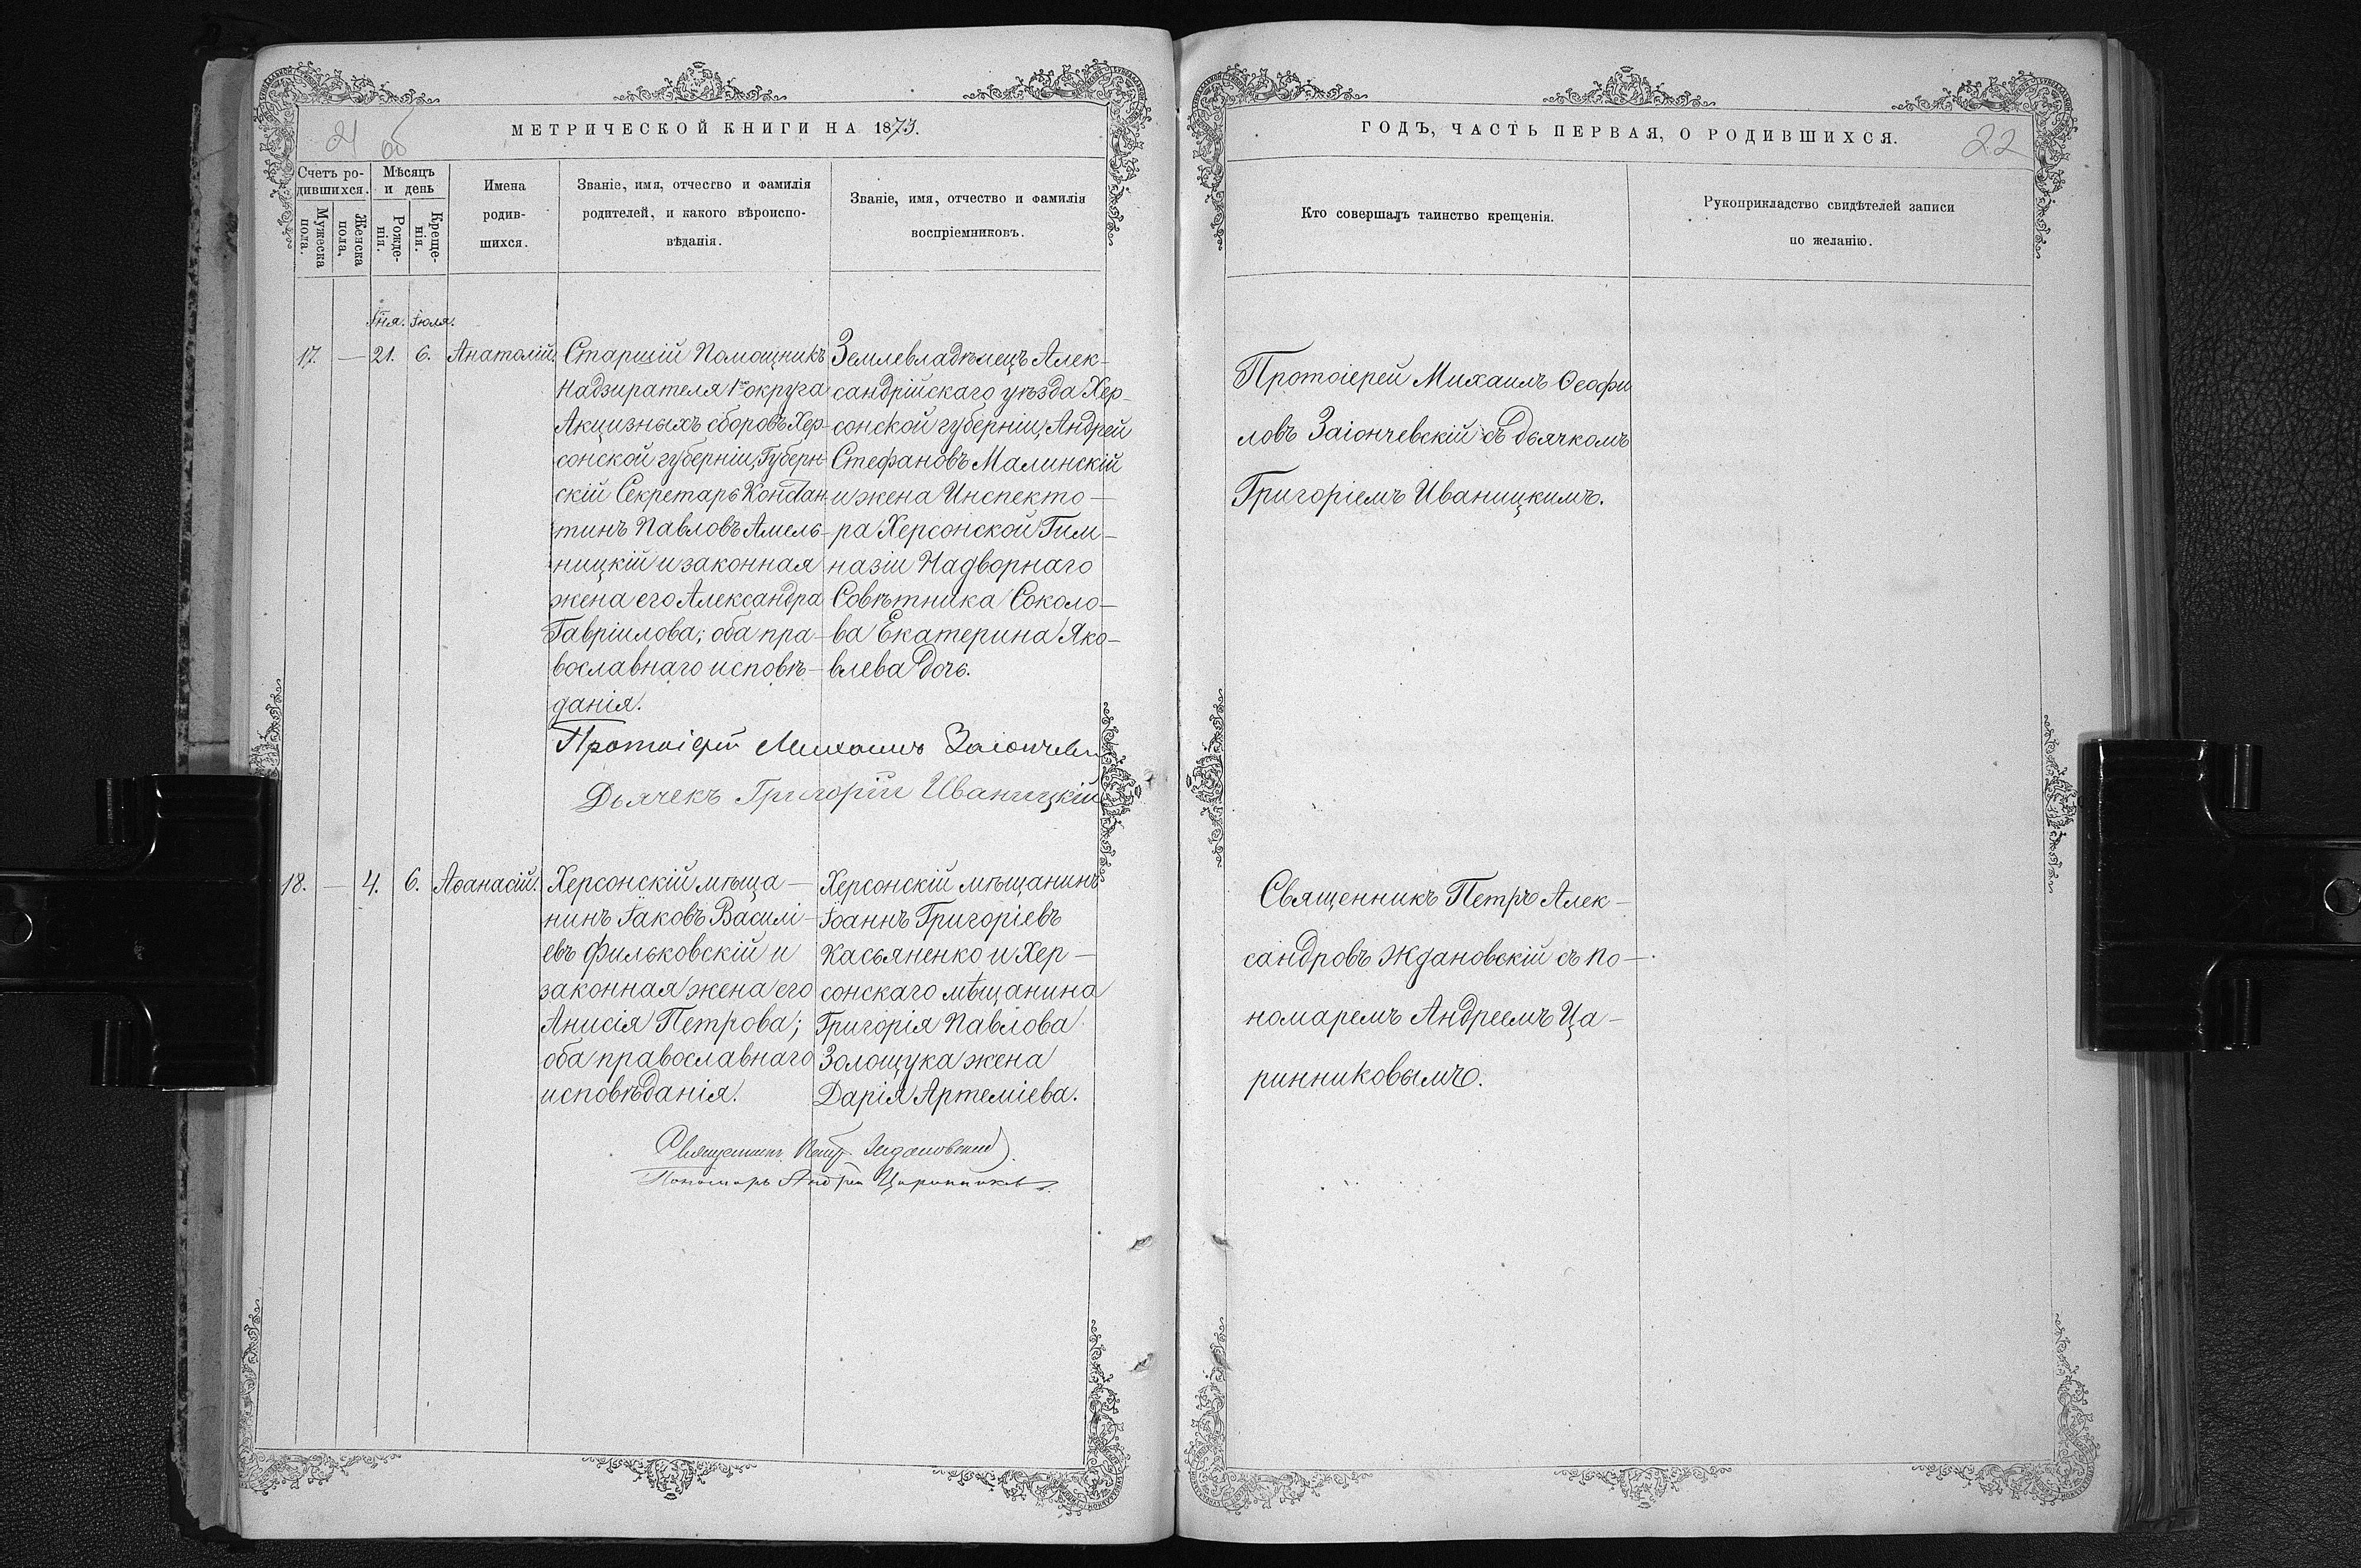 МЕТРИЧЕСКОЙ КНИГИ НА 1873.
21 об
Счетъ ро-
дившихся.
Мѣсяцъ
и день
Мужеска
пола.
Женска
пола.
Рожде-
нія.
Креще-
нія.
Имена
родив-
шихся.
Званіе, имя, отчество и фамилія
родителей, и какого вѣроиспо-
вѣданія.
Званіе, имя, отчество и фамилія
воспріемниковъ.
Іюня. Іюля.
17. — 21. 6. Анатолій.
Старшій Помощникъ
Надзирателя 1го округа
Акцизныхъ сборовъ Хер-
сонской губерніи, Губерн-
скій Секретарь Констан-
тинъ Павловъ Амель-
ницкій и законная
жена его Александра
Гавріилова; оба пра-
вославнаго исповѣ-
данія.
Землевладѣлецъ Алек-
сандрійскаго уѣзда Хер-
сонской губерніи, Андрей
Стефановъ Малинскій
и жена Инспекто-
ра Херсонской Гим-
назіи Надворнаго
Совѣтника Соколо-
ва Екатерина Яко-
влева дочь.
Протоіерей Михаилъ Заіончевскій
Дьячекъ Григорій Иваницкій
18. — 4. 6. Аѳанасій.
Херсонскій мѣща-
нинъ Іаковъ Василі-
евъ Фильковскій и
законная жена его
Анисія Петрова;
оба православнаго
исповѣданія.
Херсонскій мѣщанинъ
Іоаннъ Григоріевъ
Касьяненко и Хер-
сонскаго мѣщанина
Григорія Павлова
Золощука жена
Дарія Артеміева.
Священникъ Петръ Ждановскій.
Пономарь Андрей Царинниковъ.
ГОДЪ, ЧАСТЬ ПЕРВАЯ, О РОДИВШИХСЯ.
22
Кто совершалъ таинство крещенія.
Рукоприкладство свидѣтелей записи
по желанію.
Протоіерей Михаилъ Ѳеофи
ловъ Заіончевскій съ дьячкомъ
Григоріемъ Иваницкимъ.
Священникъ Петръ Алек-
сандровъ Ждановскій съ по-
номаремъ Андреемъ Ца-
ринниковымъ.